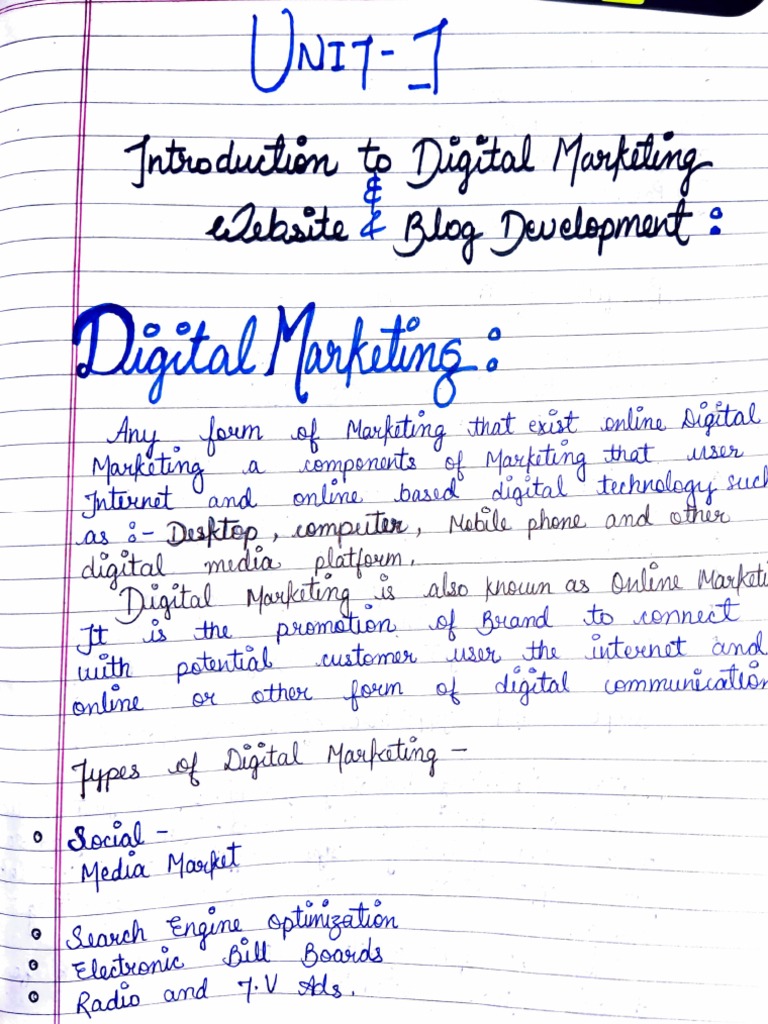 UNIT-I
Introduction to Digital Marketing
&
Website & Blog Development :
Digital Marketing :
Any form of Marketing that exist online Digital
Marketing a components of Marketing that user
Internet and online based digital technology such
as :- Desktop, computer, Mobile phone and other
digital media platform.
Digital Marketing is also known as Online Marketi
It is the promotion of Brand to connect
with potential customer user the internet and
online or other form of digital communication
Types of Digital Marketing -
Social -
Media Market
Search Engine Optimization
Electronic Bill Boards
Radio and T.V Ads.